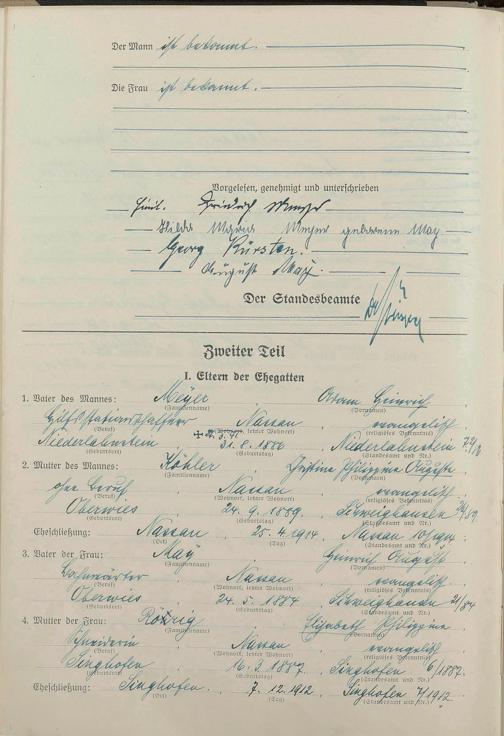 Der Mann ist bekannt.
Die Frau ist bekannt.
Vorgelesen, genehmigt und unterschrieben
Friedrich Meyer
Hilda Meyer geborene May
Georg Kürsten.
August May.
Der Standesbeamte
Zweiter Teil
I. Eltern der Ehegatten
1. Vater des Mannes: Meyer Adam Heinrich
(Familienname) (Vornamen)
Nassau evangelisch
(Beruf) (Wohnort, letzter Wohnort) (religiöses Bekenntnis)
Niederlahnstein 31.8.1886 Niederlahnstein
(Geburtsort) (Geburtstag) (Standesamt und Nr.)
2. Mutter des Mannes: Köhler Christine Philippine Auguste
(Familienname) (Vornamen)
ohne Beruf Nassau evangelisch
(Beruf) (Wohnort, letzter Wohnort) (religiöses Bekenntnis)
Oberwies 24.9.1889 Schweighausen
(Geburtsort) (Geburtstag) (Standesamt und Nr.)
Eheschließung: Nassau 25.4.1914 Nassau 10/1914
(Ort) (Tag) (Standesamt und Nr.)
3. Vater der Frau: May Heinrich August
(Familienname) (Vornamen)
Bahnwärter Nassau evangelisch
(Beruf) (Wohnort, letzter Wohnort) (religiöses Bekenntnis)
Oberwies 24.5.1884 Schweighausen
(Geburtsort) (Geburtstag) (Standesamt und Nr.)
4. Mutter der Frau: Elisabeth Philippine
(Familienname) (Vornamen)
Schneiderin Nassau evangelisch
(Beruf) (Wohnort, letzter Wohnort) (religiöses Bekenntnis)
Singhofen 16.3.1887 Singhofen 6/1887.
(Geburtsort) (Geburtstag) (Standesamt und Nr.)
Eheschließung: Singhofen 7.12.1912 Singhofen 7/1912
(Ort) (Tag) (Standesamt und Nr.)